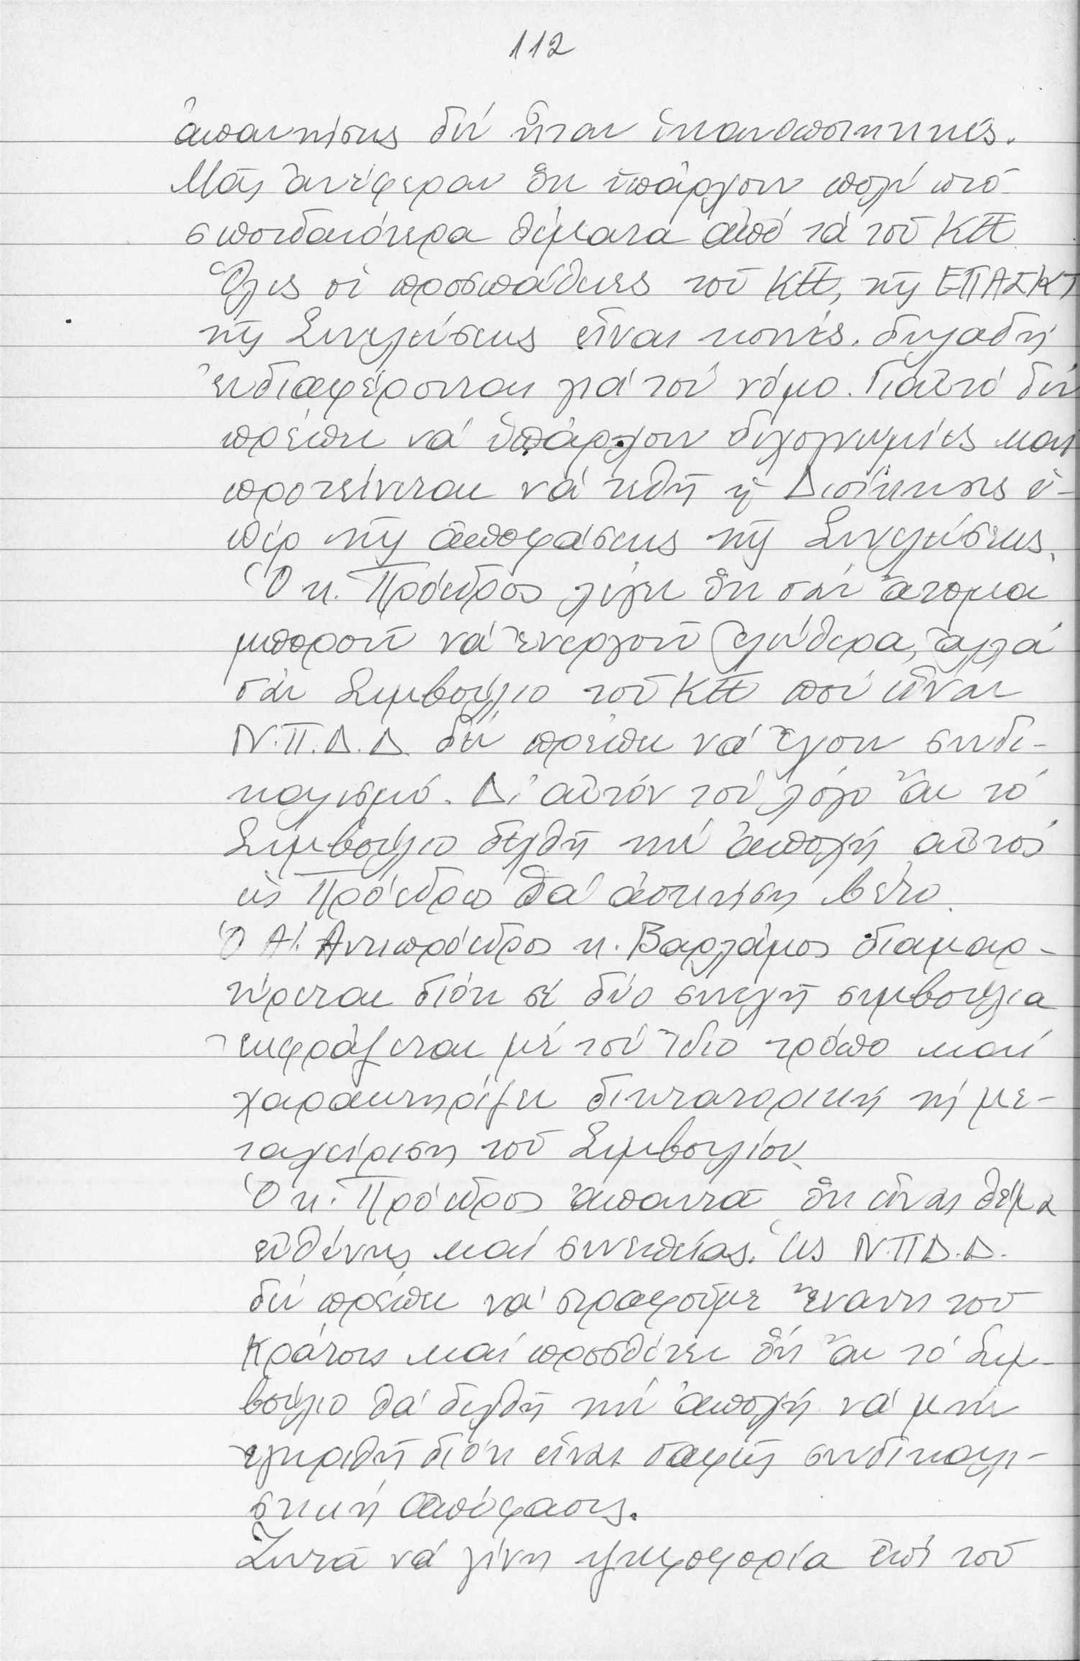 112
ἀπαντήσεις δέν ἦταν ἱκανοποιητικές.
Μᾶς ἀνέφεραν ὅτι ὑπάρχουν πολύ πιό
σπουδαιότερα θέματα ἀπό τά τοῦ ΚΠ
Ὅλες οἱ προσπάθειες τοῦ ΚΠ, τῆς ΕΠΑΣΚΤ
τῆς Συνελεύσεως εἶναι κοινές. δηλαδή
ἐνδιαφέρονται γιά τόν νόμο. Γιαὐτό δέν
πρέπει νά ὑπάρχουν διχογνωμίες καί
προτείνεται νά τεθῆ ἡ Διοίκησις ὑ-
πέρ τῆς ἀποφάσεως τῆς Συνελεύσεως.
Ὁ κ. Πρόεδρος λέγει ὅτι σάν ἄτομα
μποροῦν νά ἐνεργοῦν ἐλεύθερα, ἀλλά
σάν Συμβούλιο τοῦ ΚΠ πού εἶναι
Ν.Π.Δ.Δ. δέν πρέπει νά ἔχουν συνδι-
καλισμό. Δι' αὐτόν τόν λόγο ἄν τό
Συμβούλιο δεχθῆ τήν ἀποχή αὐτός
ὡς Πρόεδρος θά ἀσκήση βέτο.
Ὁ Α'. Αντιπρόεδρος κ. Βαρλάμος διαμαρ-
τύρεται διότι σέ δύο συνεχῆ συμβούλια
ἐκφράζεται μέ τόν ἴδιο τρόπο καί
χαρακτηρίζει δικτατορική τή με-
ταχείριση τοῦ Συμβουλίου.
Ὁ κ. Πρόεδρος ἀπαντᾶ ὅτι εἶναι θέμα
εὐθύνης καί συνεπείας. Ὡς Ν.Π.Δ.Δ.
δέν πρέπει νά στραφοῦμε ἔναντι τοῦ
Κράτους καί προσθέτει ὅτι ἄν τό Συμ-
βούλιο θά δεχθῆ τήν ἀποχή νά μήν
ἐγκριθῆ διότι εἶναι σαφῶς συνδικαλι-
στική ἀπόφασις.
Ζητᾶ νά γίνη ψηφοφορία ἐπί τοῦ